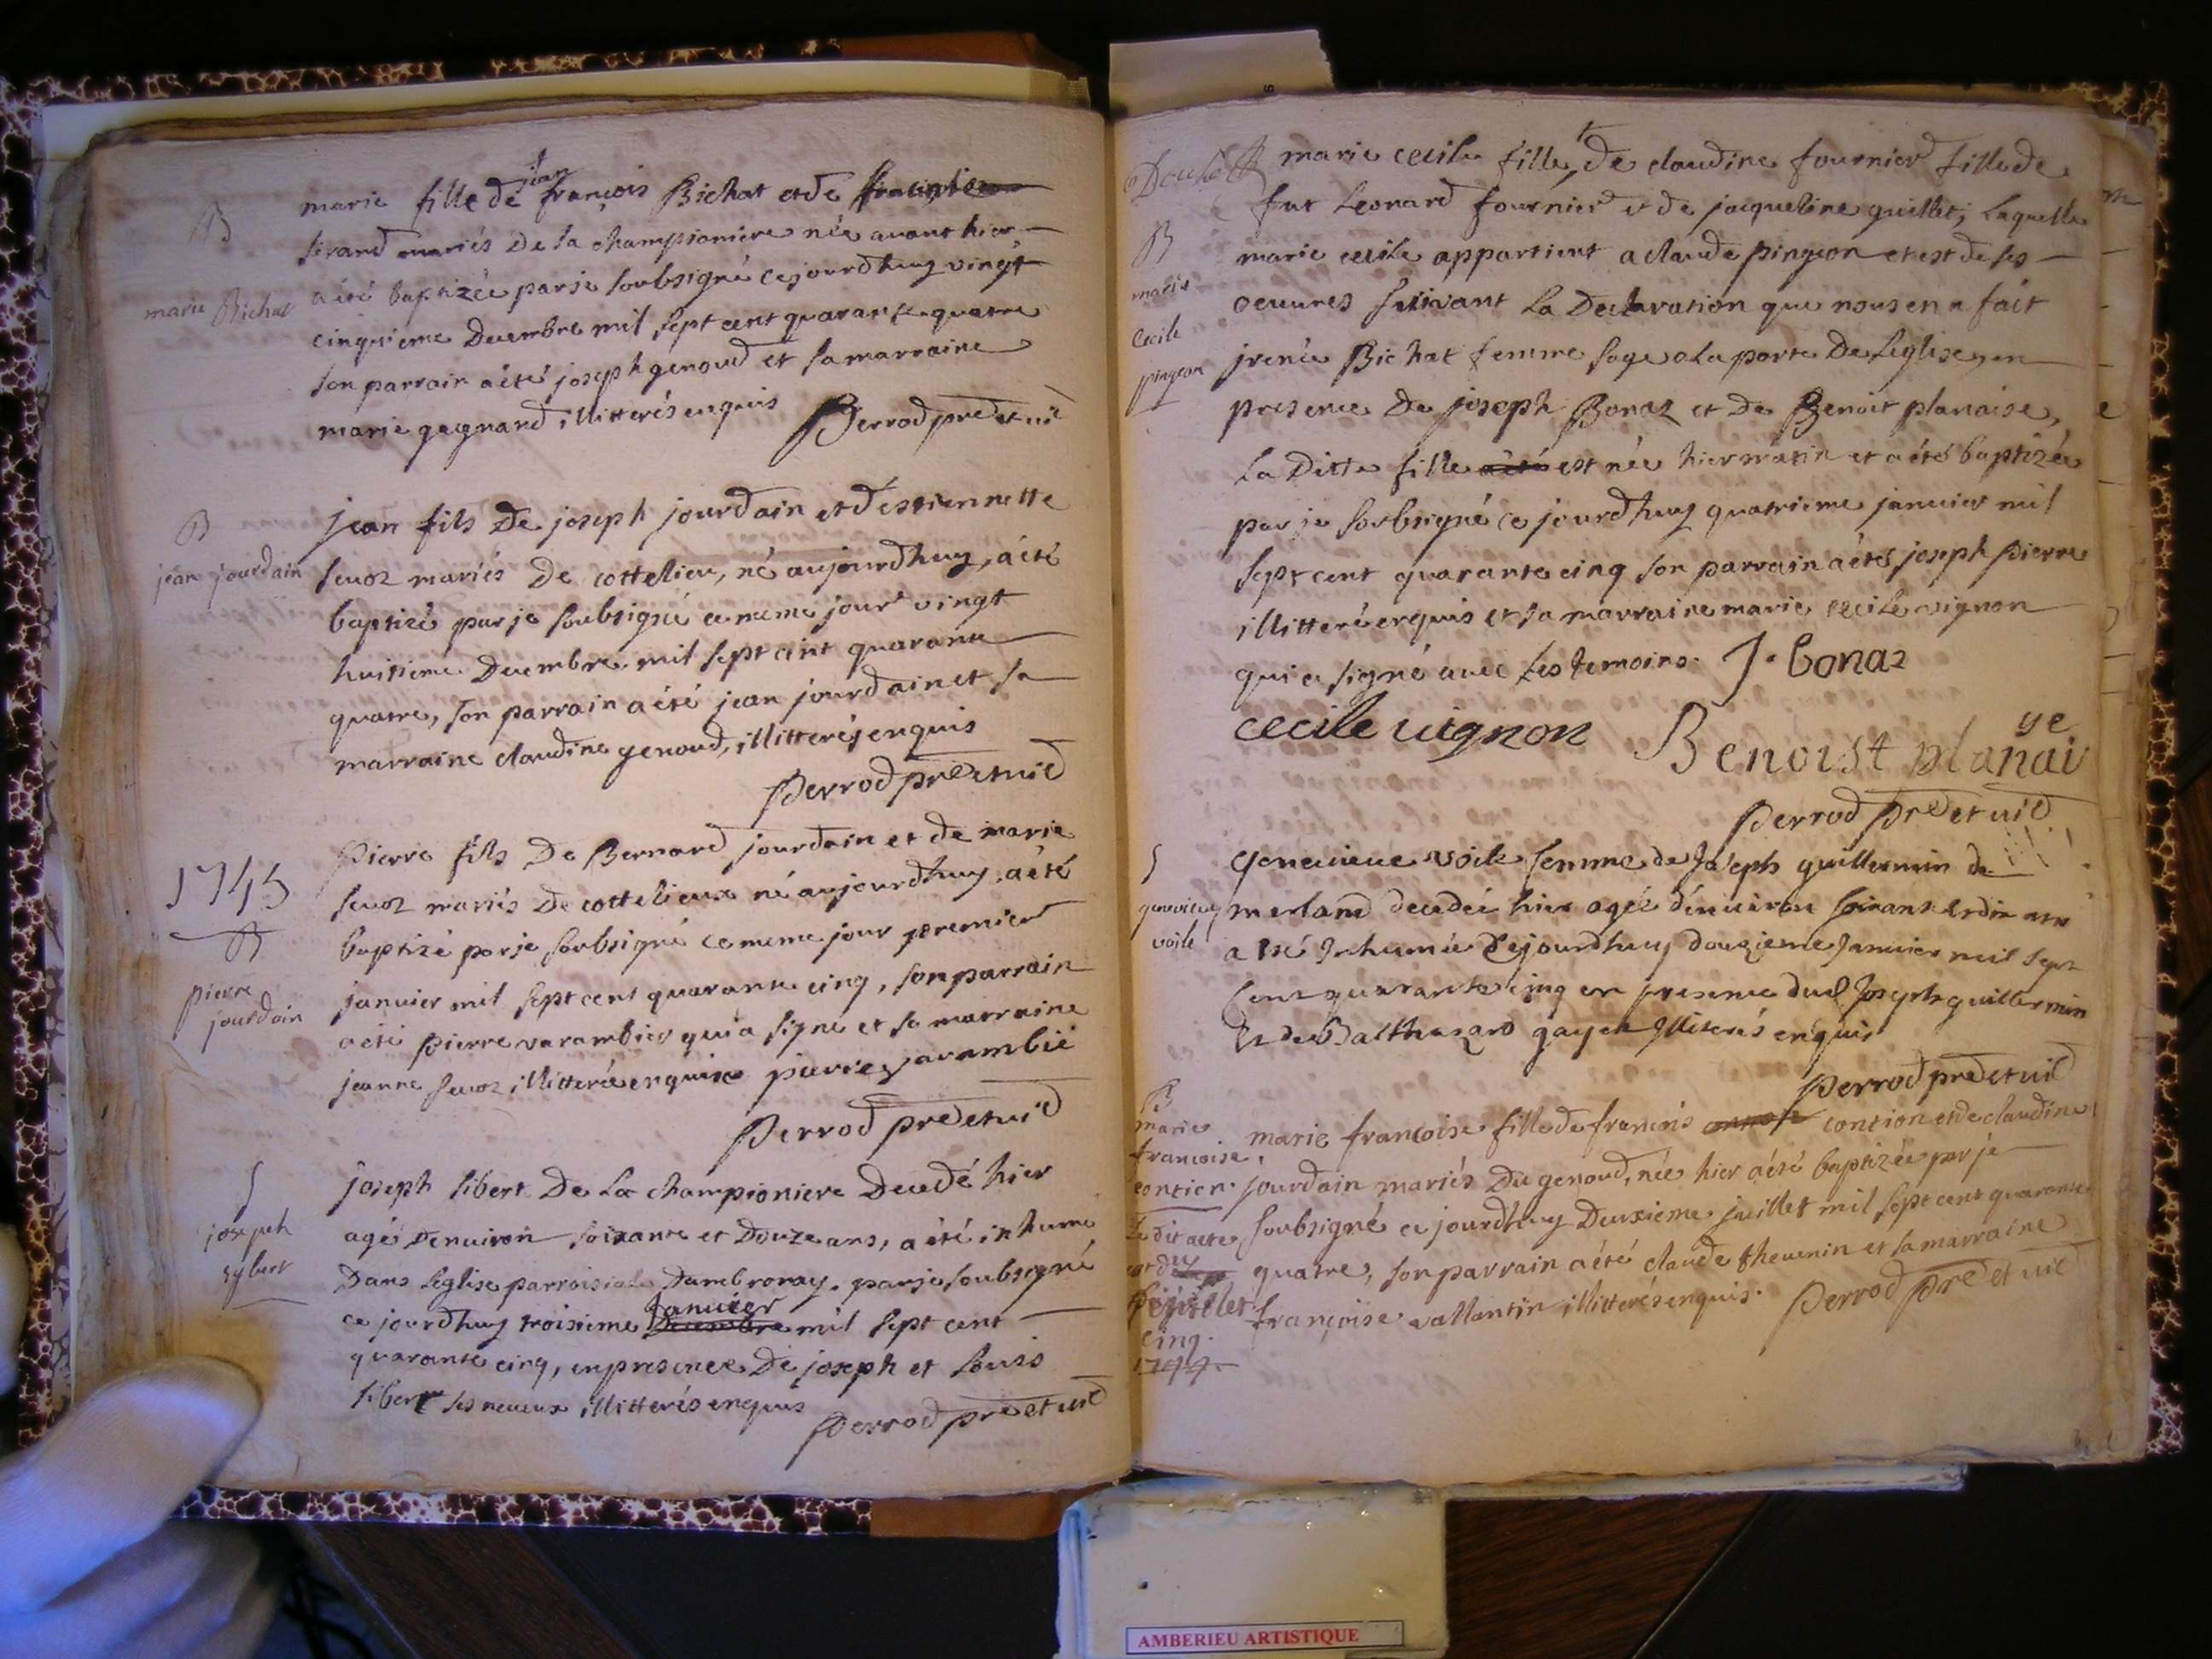 B
marie Bichat
marie fille de jean françois Bichat et de
sirand mariés de la championiere née avant hier
a été baptizée par je soubsigné cejourdhuy vingt
cinquieme decembre mil sept cent quarante quatre
son parrain a été joseph genoud et sa marraine
marie gagnard, illitterés enquis
Perrod pre et vic
B
jean jourdain
jean fils de joseph jourdain et d'estiennette
seuoz mariés de cottelieu, né aujourdhuy, a été
baptizé par je soubsigné ce meme jour vingt
huitieme decembre mil sept cent quarante
quatre, son parrain a été jean jourdain et sa
marraine claudine genoud, illitterés enquis
Perrod pre et vic
1745
B
pierre
jourdain
Pierre fils de Bernard jourdain et de marie
seuoz mariés de cottelieux né aujourdhuy, a été
baptizé par je soubsigné ce meme jour premier
janvier mil sept cent quarante cinq, son parrain
a été pierre varambier qui a signé et sa marraine
jeanne seuoz illitterée enquise pierre varambie
Perrod pre et vic
S
joseph
sybert
joseph sibert de la championiere decedé hier
agé denuiron soixante et douze ans, a été inhumé
dans leglise parroisiale dambronay, par je soubsigné
ce jourdhuy troisieme Januier decembre mil sept cent
quarante cinq, en presence de joseph et louis
sibert ses neueux illitterés enquis
Perrod pre et vic
B
marie
cecile
pingeon
marie cecile fille de claudine fournier fille de
fut Leonard fournier et de jacqueline guillet, laquelle
marie cecile appartient a claude pingeon et est de ses
oeuures suiuant la declaration que nous en a fait
jrenée Bichat femme sage a la porte de leglise, en
presence de joseph Bonaz et de Benoit planaise,
la ditte fille a été est née hier matin et a été baptizée
par je soubsigné ce jourdhuy quatrieme januier mil
sept cent quarante cinq son parrain a été joseph pierre
illitteré enquis et sa marraine marie cecile vignon
qui a signé auec les temoins. J. bonaz
cecile uignon
Benoist planai
ye
Perrod pre et vic
S
genevieue
voile
Geneuieue voile femme de Joseph guillermin de
merland decedée hier agée denuiron soixante et dix ans
a été Inhumée Cejourdhuy douzieme Januier mil sept
Cent quarante cinq en presence dud Joseph guillermin
Et de Balthazard gayet Illiterés enquis
Perrod pre et vic
B
marie
francoise
contion.
marie francoise fille de francois contion et de claudine
jourdain mariés du genoud, née hier a été baptizée par je
soubsigné ce jourdhuy deuxieme juillet mil sept cent quarante
quatre, son parrain a été claude theuenin et sa marraine
françoise vallantin illitterés enquis. Perrod pre et vic
Ledit acte
est du
juillet
cinq.
1744.
AMBERIEU ARTISTIQUE